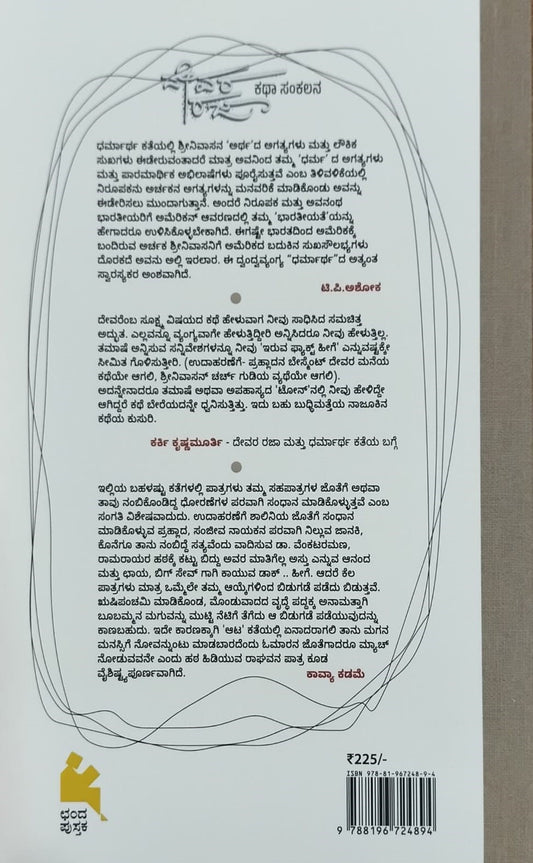 ದೇವರ
ರಜಾ
ಕಥಾ ಸಂಕಲನ
ಧರ್ಮಾರ್ಥ ಕತೆಯಲ್ಲಿ ಶ್ರೀನಿವಾಸನ 'ಅರ್ಥ'ದ ಅಗತ್ಯಗಳು ಮತ್ತು ಲೌಕಿಕ
ಸುಖಗಳು ಈಡೇರುವಂತಾದರೆ ಮಾತ್ರ ಅವನಿಂದ ತಮ್ಮ 'ಧರ್ಮ' ದ ಅಗತ್ಯಗಳು
ಮತ್ತು ಪಾರಮಾರ್ಥಿಕ ಅಭಿಲಾಷೆಗಳು ಪೂರೈಸುತ್ತವೆ ಎಂಬ ತಿಳಿವಳಿಕೆಯಲ್ಲಿ
ನಿರೂಪಕನು ಅರ್ಚಕನ ಅಗತ್ಯಗಳನ್ನು ಮನವರಿಕೆ ಮಾಡಿಕೊಂಡು ಅವನ್ನು
ಈಡೇರಿಸಲು ಮುಂದಾಗುತ್ತಾನೆ. ಅಂದರೆ ನಿರೂಪಕ ಮತ್ತು ಅವನಂಥ
ಭಾರತೀಯರಿಗೆ ಅಮೆರಿಕನ್ ಆವರಣದಲ್ಲಿ ತಮ್ಮ 'ಭಾರತೀಯತೆ'ಯನ್ನು
ಹೇಗಾದರೂ ಉಳಿಸಿಕೊಳ್ಳಬೇಕಾಗಿದೆ. ಈಗಷ್ಟೇ ಭಾರತದಿಂದ ಅಮೆರಿಕಕ್ಕೆ
ಬಂದಿರುವ ಅರ್ಚಕ ಶ್ರೀನಿವಾಸನಿಗೆ ಅಮೆರಿಕದ ಬದುಕಿನ ಸುಖಸೌಲಭ್ಯಗಳು
ದೊರಕದೆ ಅವನು ಅಲ್ಲಿ ಇರಲಾರ. ಈ ದ್ವಂದ್ವವ್ಯಂಗ್ಯ "ಧರ್ಮಾರ್ಥ"ದ ಅತ್ಯಂತ
ಸ್ವಾರಸ್ಯಕರ ಅಂಶವಾಗಿದೆ.
ಟಿ.ಪಿ.ಅಶೋಕ
ದೇವರೆಂಬ ಸೂಕ್ಷ್ಮ ವಿಷಯದ ಕಥೆ ಹೇಳುವಾಗ ನೀವು ಸಾಧಿಸಿದ ಸಮಚಿತ್ತ
ಅದ್ಭುತ. ಎಲ್ಲವನ್ನೂ ವ್ಯಂಗ್ಯವಾಗೇ ಹೇಳುತ್ತಿದ್ದೀರಿ ಅನ್ನಿಸಿದರೂ ನೀವು ಹೇಳುತ್ತಿಲ್ಲ.
ತಮಾಷೆ ಅನ್ನಿಸುವ ಸನ್ನಿವೇಶಗಳನ್ನೂ ನೀವು 'ಇರುವ ಫ್ಯಾಕ್ಟ್ ಹೀಗೆ' ಎನ್ನುವಷ್ಟಕ್ಕೇ
ಸೀಮಿತ ಗೊಳಿಸುತ್ತೀರಿ. (ಉದಾಹರಣೆಗೆ- ಪ್ರಹ್ಲಾದನ ಬೇಸ್ಮೆಂಟ್ ದೇವರ ಮನೆಯ
ಕಥೆಯೇ ಆಗಲಿ, ಶ್ರೀನಿವಾಸನ್ ಚರ್ಚ್ ಗುಡಿಯ ವ್ಯಥೆಯೇ ಆಗಲಿ).
ಅದನ್ನೇನಾದರೂ ತಮಾಷೆ ಅಥವಾ ಅಪಹಾಸ್ಯದ 'ಟೋನ್'ನಲ್ಲಿ ನೀವು ಹೇಳಿದ್ದೇ
ಆಗಿದ್ದರೆ ಕಥೆ ಬೇರೆಯದನ್ನೇ ಧ್ವನಿಸುತ್ತಿತ್ತು. ಇದು ಬಹು ಬುದ್ಧಿಮತ್ತೆಯ ನಾಜೂಕಿನ
ಕಥೆಯ ಕುಸುರಿ.
ಕರ್ಕಿ ಕೃಷ್ಣಮೂರ್ತಿ - ದೇವರ ರಜಾ ಮತ್ತು ಧರ್ಮಾರ್ಥ ಕತೆಯ ಬಗ್ಗೆ
ಇಲ್ಲಿಯ ಬಹಳಷ್ಟು ಕತೆಗಳಲ್ಲಿ ಪಾತ್ರಗಳು ತಮ್ಮ ಸಹಪಾತ್ರಗಳ ಜೊತೆಗೆ ಅಥವಾ
ತಾವು ನಂಬಿಕೊಂಡಿದ್ದ ಧೋರಣೆಗಳ ಪರವಾಗಿ ಸಂಧಾನ ಮಾಡಿಕೊಳ್ಳುತ್ತವೆ ಎಂಬ
ಸಂಗತಿ ವಿಶೇಷವಾದುದು. ಉದಾಹರಣೆಗೆ ಶಾಲಿನಿಯ ಜೊತೆಗೆ ಸಂಧಾನ
ಮಾಡಿಕೊಳ್ಳುವ ಪ್ರಹ್ಲಾದ, ಸಂಜೀವ ನಾಯಕನ ಪರವಾಗಿ ನಿಲ್ಲುವ ಜಾನಕಿ,
ಕೊನೆಗೂ ತಾನು ನಂಬಿದ್ದೆ ಸತ್ಯವೆಂದು ವಾದಿಸುವ ಡಾ. ವೆಂಕಟರಮಣ,
ರಾಮರಾಯರ ಹಠಕ್ಕೆ ಕಟ್ಟು ಬಿದ್ದು ಅವರ ಮಾತಿಗೆಲ್ಲ ಅಸ್ತು ಎನ್ನುವ ಆನಂದ
ಮತ್ತು ಛಾಯ, ಬಿಗ್ ಸೇವ್ ಗಾಗಿ ಕಾಯುವ ಡಾಕ್ .. ಹೀಗೆ. ಆದರೆ ಕೆಲ
ಪಾತ್ರಗಳು ಮಾತ್ರ ಒಮ್ಮೆಲೇ ತಮ್ಮ ಆಯ್ಕೆಗಳಿಂದ ಬಿಡುಗಡೆ ಪಡೆದು ಬಿಡುತ್ತವೆ.
ಋಷಿಪಂಚಮಿ ಮಾಡಿಕೊಂಡ, ಮೊಂಡುವಾದದ ವೃದ್ಧೆ ಪದ್ದಕ್ಕ ಅನಾಮತ್ತಾಗಿ
ಬೂಬಮ್ಮನ ಮಗುವನ್ನು ಮುಟ್ಟಿ ನೆಟಿಗೆ ತೆಗೆದು ಆ ಬಿಡುಗಡೆ ಪಡೆಯುವುದನ್ನು
ಕಾಣಬಹುದು. ಇದೇ ಕಾರಣಕ್ಕಾಗಿ 'ಆಟ' ಕತೆಯಲ್ಲಿ ಏನಾದರಾಗಲಿ ತಾನು ಮಗನ
ಮನಸ್ಸಿಗೆ ನೋವನ್ನುಂಟು ಮಾಡಬಾರದೆಂದು ಓಮಾರನ ಜೊತೆಗಾದರೂ ಮ್ಯಾಚ್
ನೋಡುವವನೇ ಎಂದು ಹಠ ಹಿಡಿಯುವ ರಾಘವನ ಪಾತ್ರ ಕೂಡ
ವೈಶಿಷ್ಟ್ಯಪೂರ್ಣವಾಗಿದೆ.
ಕಾವ್ಯಾ ಕಡಮೆ
₹225/-
ISBN 978-81-967248-9-4
9 788196 724894
ಛಂದ
ಪುಸ್ತಕ